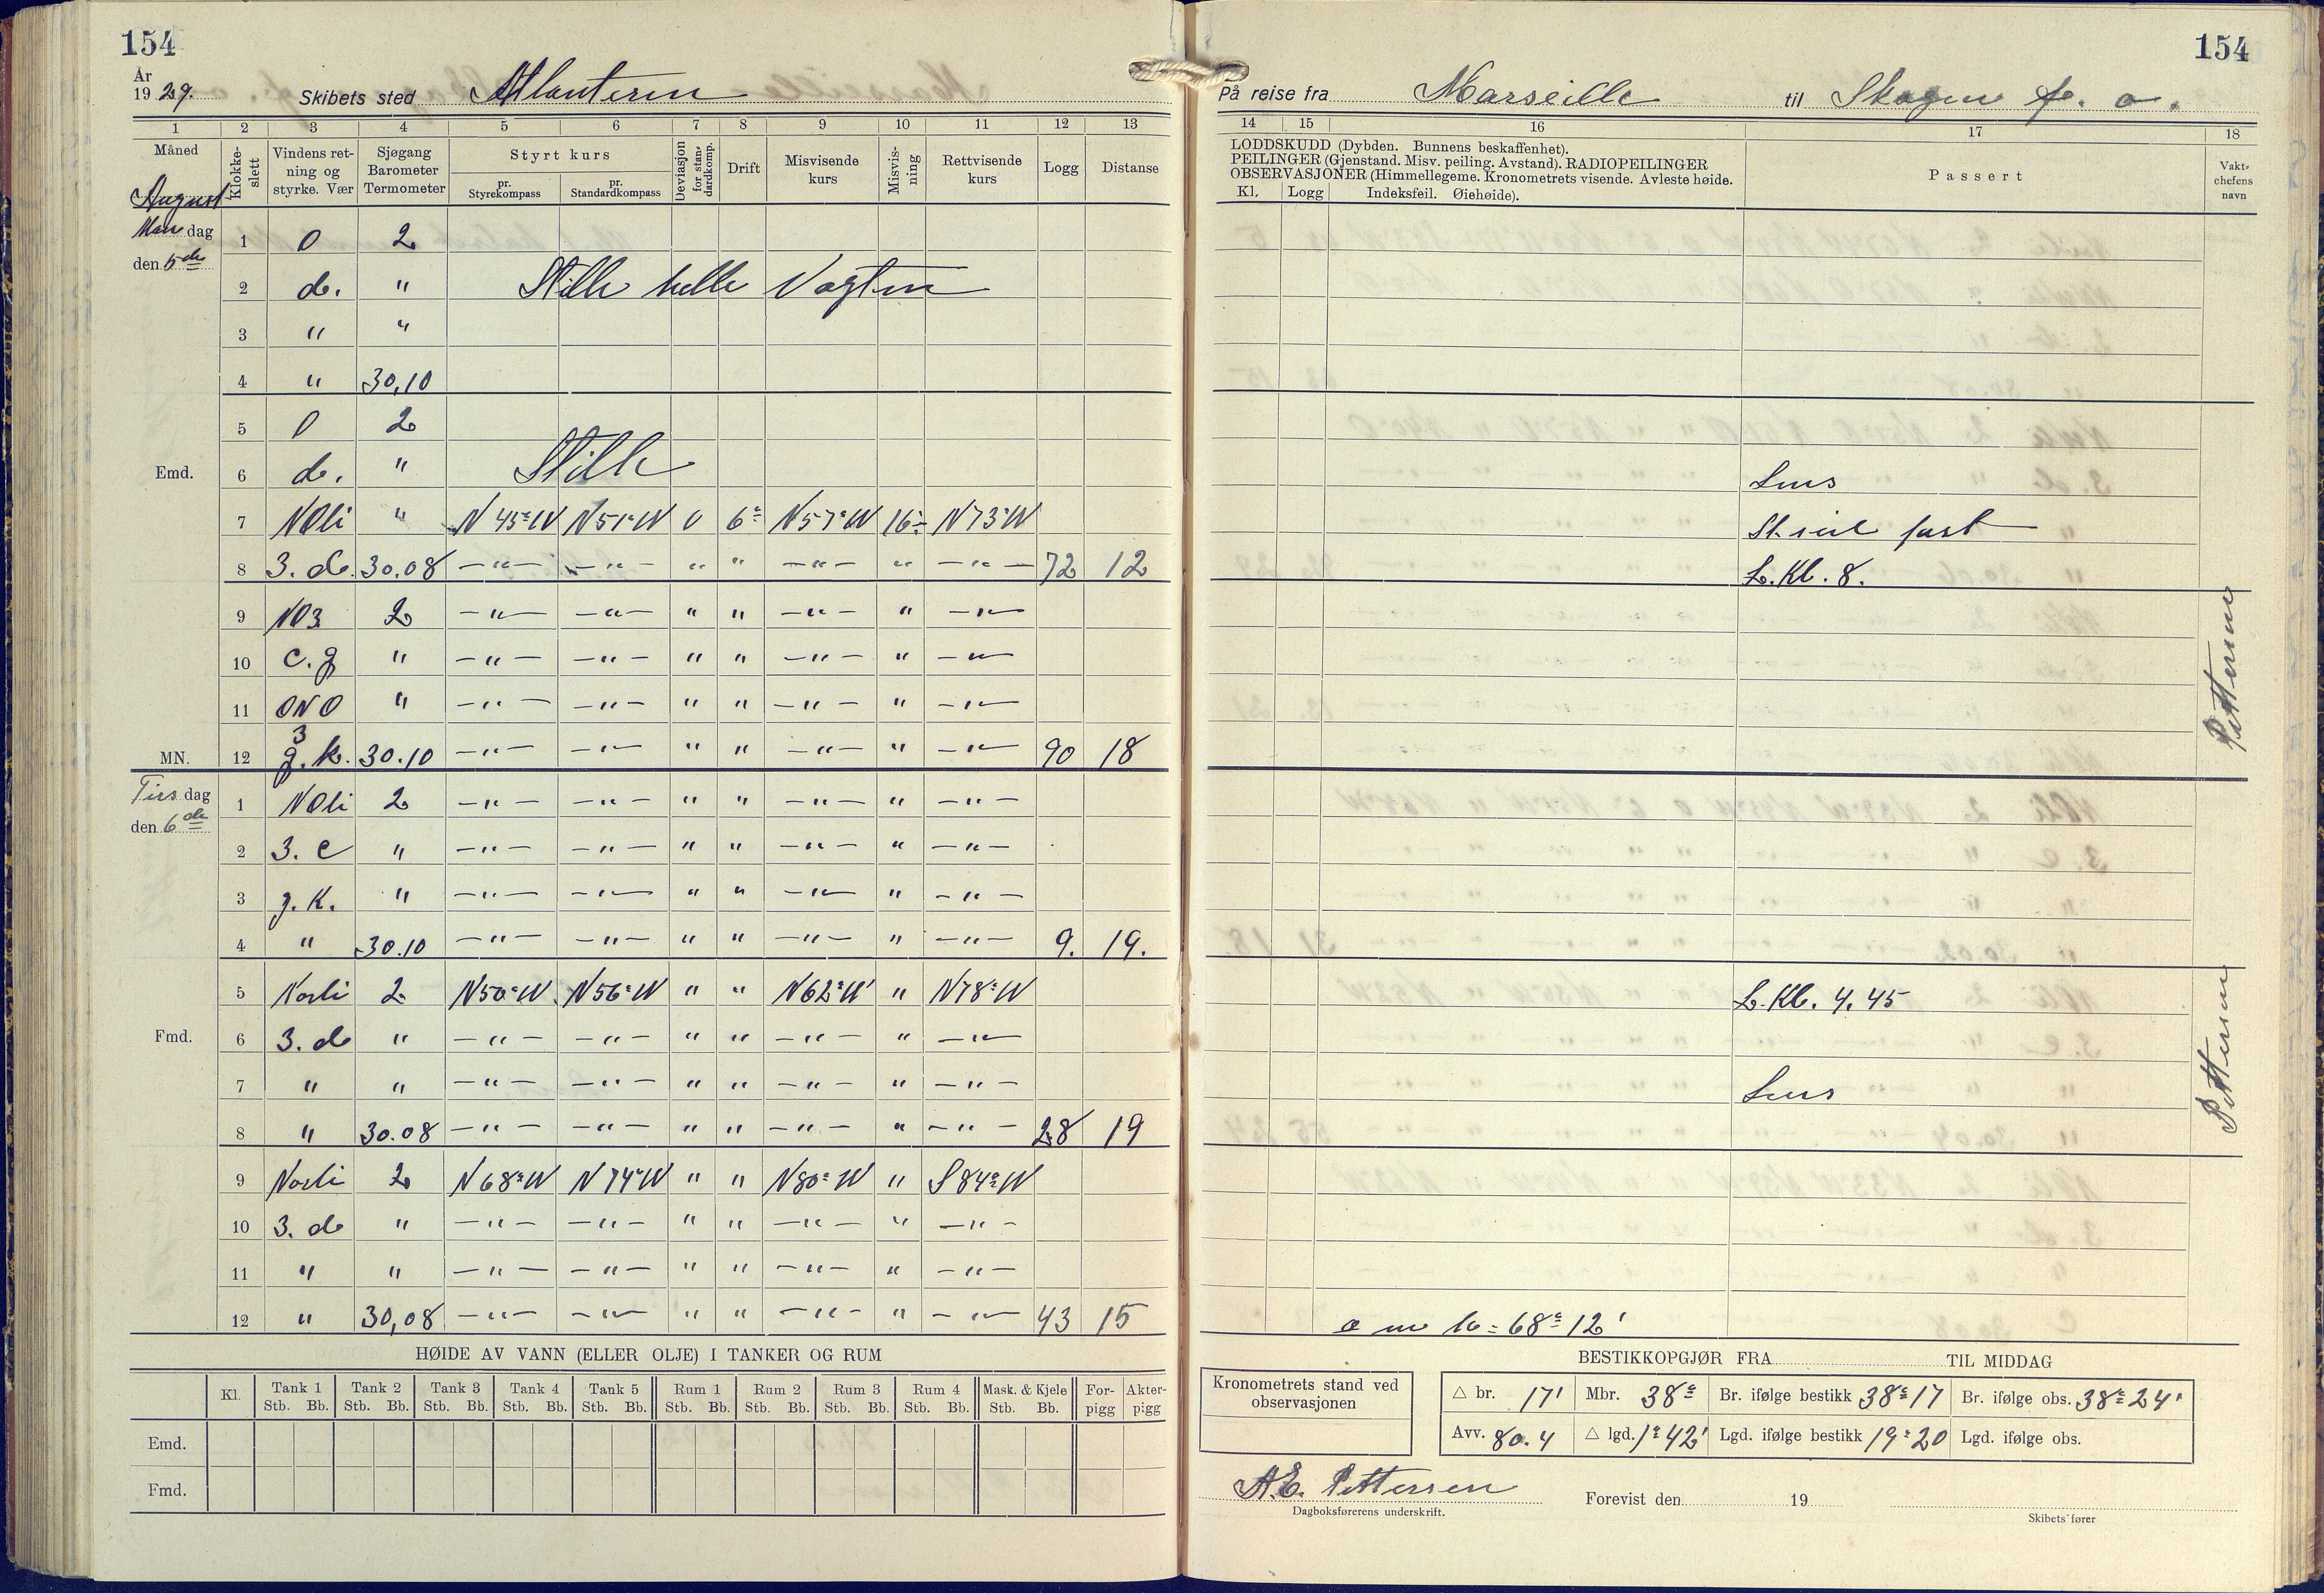 154
154
År
1929.
Skibets sted Atlanteren
På reise fra Marseille til Skagen f. o.
1 2 3 4 5 6 7 8 9 10 11 12 13
14 15 16 17 18
Måned
Klokke-
slett
Vindens ret-
ning og
styrke. Vær
Sjøgang
Barometer
Termometer
Styrt kurs
pr.
Styrekompass
pr.
Standardkompass
Deviasjon
for stan-
dardkomp.
Drift
Misvisende
kurs
Misvis-
ning
Rettvisende
kurs
Logg
Distanse
LODDSKUDD (Dybden. Bunnens beskaffenhet).
PEILINGER (Gjenstand. Misv. peiling. Avstand). RADIOPEILINGER
OBSERVASJONER (Himmellegeme. Kronometrets visende. Avleste høide.
Kl. Logg Indeksfeil. Øiehøide).
Passert
Vakt-
chefens
navn
August
Man dag
den 5de
1 0 2
2 d. " Stille helle Vagten
3 " "
4 " 30,10
5 0 2
Emd. 6 d. " Stille
7 NOli " N45°W N51°W 0 6° N57°W 16° N73°W
8 3. d. 30.08 —"— —"— " " —"— " —"— 72 12
Lns
St. seil fast
L. Kl. 8.
9 NO3 2 —"— —"— " " —"— " —"—
10 c. g " —"— —"— " " —"— " —"—
11 ONO " —"— —"— " " —"— " —"—
3
MN. 12 g. k. 30.10 —"— —"— " " —"— " —"— 90 18
Pettersen
Tirs dag
den 6de
1 NOli 2 —"— —"— " " —"— " —"—
2 3. c " —"— —"— " " —"— " —"—
3 g. k. " —"— —"— " " —"— " —"—
4 " 30.10 —"— —"— " " —"— " —"— 9. 19.
5 Norli 2 N50°W N56°W " " N62°W " N78°W L. Kl. 4.45
Fmd. 6 3. d " —"— —"— " " —"— " —"—
7 " " —"— —"— " " —"— " —"— Lns
8 " 30.08 —"— —"— " " —"— " —"— 28 19
Pettersen
9 Norli 2 N68°W N74°W " " N80°W " S84°W
10 3. d " —"— —"— " " —"— " —"—
11 " " —"— —"— " " —"— " —"—
12 " 30,08 —"— —"— " " —"— " —"— 43 15
o m h = 68° 12'
HØIDE AV VANN (ELLER OLJE) I TANKER OG RUM
Kl. Tank 1 Tank 2 Tank 3 Tank 4 Tank 5 Rum 1 Rum 2 Rum 3 Rum 4 Mask. & Kjele For- Akter-
Stb. Bb. Stb. Bb. Stb. Bb. Stb. Bb. Stb. Bb. Stb. Bb. Stb. Bb. Stb. Bb. Stb. Bb. Stb. Bb. pigg pigg
Emd.
Fmd.
BESTIKKOPGJØR FRA TIL MIDDAG
Kronometrets stand ved
observasjonen
△ br. 17' Mbr. 38° Br. ifølge bestikk 38°17 Br. ifølge obs. 38°24'
Avv. 80.4 △ lgd. 1°42' Lgd. ifølge bestikk 19°20 Lgd. ifølge obs.
A.E. Pettersen
Dagboksførerens underskrift.
Forevist den 19
Skibets fører